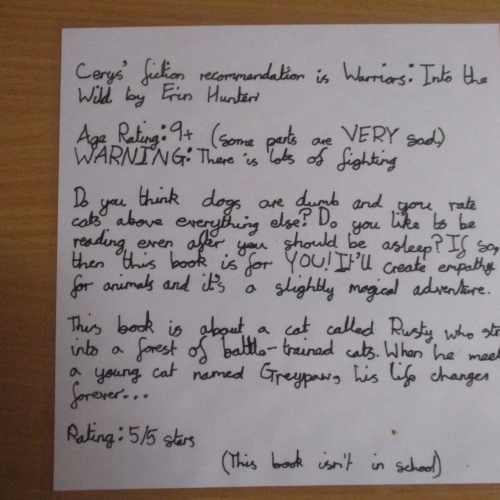 Cerys' fiction recommendation is Warriors: Into the
Wild by Erin Hunter.
Age Rating: 9+ (some parts are VERY sad)
WARNING: There is lots of fighting
Do you think dogs are dumb and you rate
cats above everything else? Do you like to be
reading even after you should be asleep? If so,
then this book is for YOU! It'll create empathy
for animals and it's a slightly magical adventure.
This book is about a cat called Rusty who
into a forest of battle-trained cats. When he
a young cat named Greypaw, his life changes
forever...
Rating: 5/5 stars
(This book isn't in school)